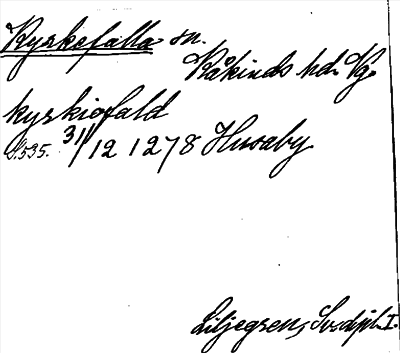 Kyrkefalla sn.
Kåkinds hd. Vg.
kyrkiofald
S.535. 31/12 1278 Husaby
Liljegren, Sv. dipl. I.